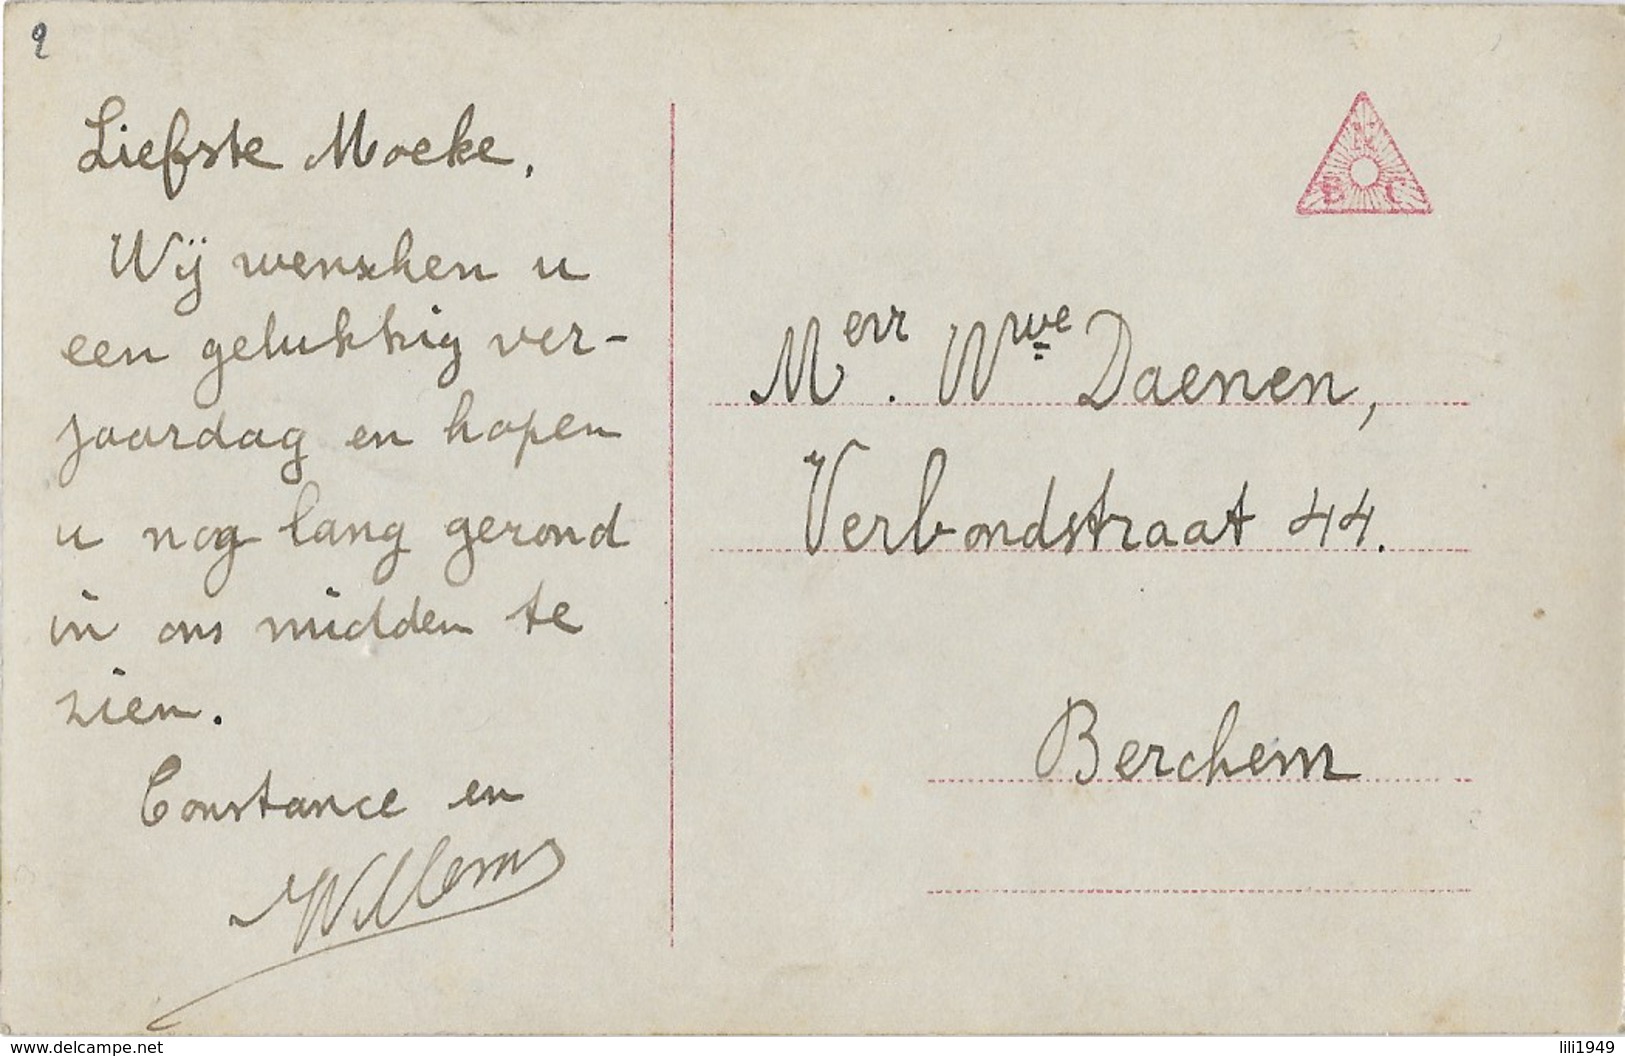 Liefste Moeke,
Wij wenschen u
een gelukkig ver-
jaardag en hopen
u nog lang gezond
in ons midden te
zien.
Constance en
Willems
N
B C
Werr. Wwe Daenen,
Verbondstraat 44.
Berchem
www.delcampe.net
lili1949